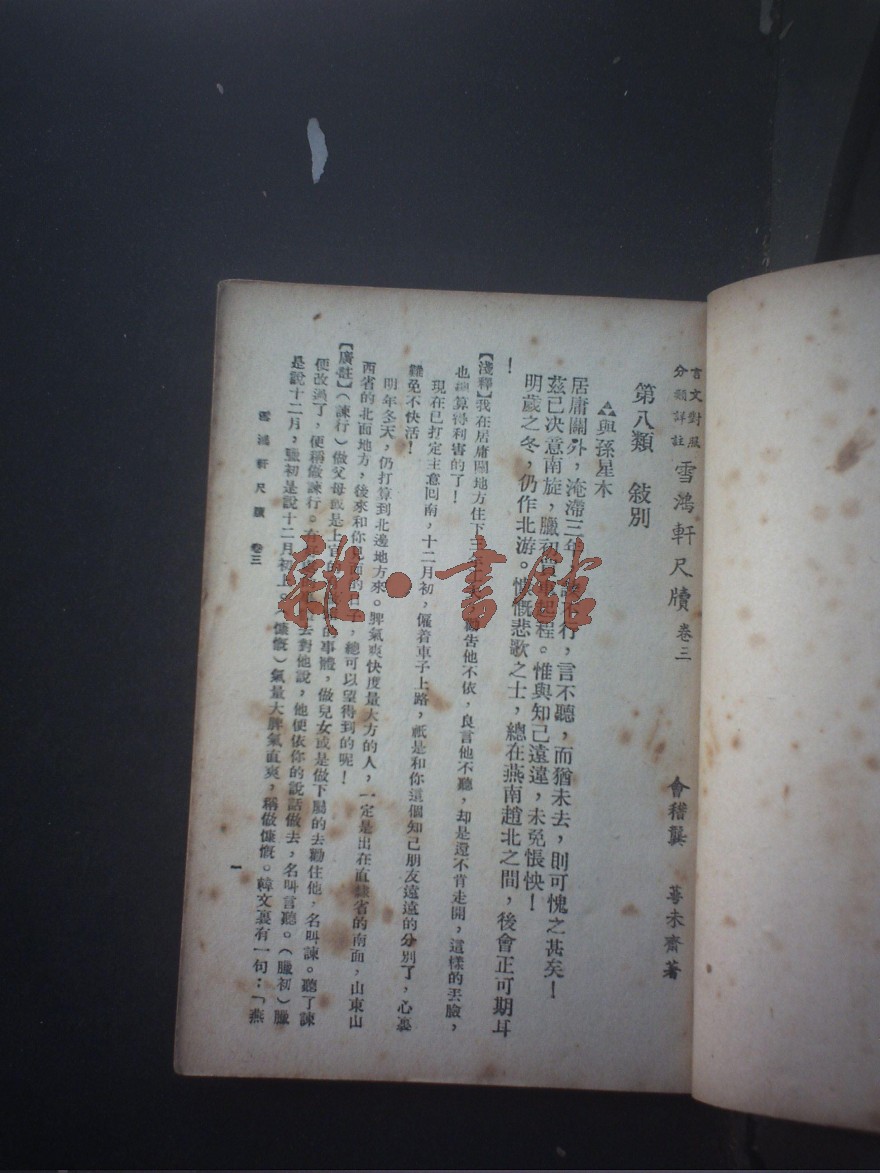 言文對照
分類詳註
雪鴻軒尺牘 卷三
會稽龔 萼未齋著
第八類 敍別
與孫星木
居庸關外，淹滯三年，諫不行，言不聽，而猶未去，則可愧之甚矣！
茲已決意南旋，臘初起程。惟與知己遠違，未免悵怏！
明歲之冬，仍作北游。慷慨悲歌之士，總在燕南趙北之間，後會正可期耳
！
【淺釋】我在居庸關地方住下三年，勸告他不依，良言他不聽，却是還不肯走開，這樣的丟臉，
也總算得利害的了！
現在已打定主意回南，十二月初，僱着車子上路，祇是和你這個知己朋友遠遠的分別了，心裏
難免不快活！
明年冬天，仍打算到北邊地方來。脾氣爽快度量大方的人，一定是出在直隸省的南面，山東山
西省的北面地方，後來和你見面的日子，總可以望得到的呢！
【廣註】（諫行）做父母或是上官的事體，做兒女或是做下屬的去勸住他，名叫諫。聽了諫
便改過了，便稱做諫行。去對他說，他便依你的說話做去，名叫言聽。（臘初）臘
是說十二月，臘初是說十二月初上。（慷慨）氣量大脾氣直爽，稱做慷慨。韓文裏有一句：「燕
雪鴻軒尺牘 卷三
一
雜·書館